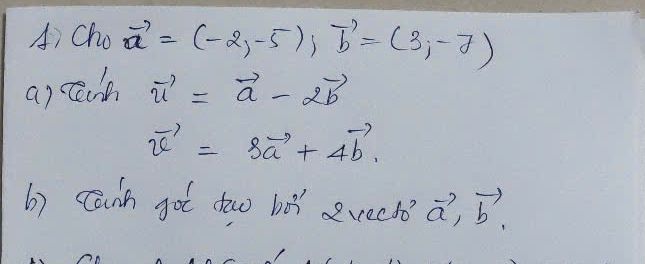 1) Cho a⃗ = (-2;-5); b⃗ = (3;-7)
a) Tính u⃗ = a⃗ - 2b⃗
v⃗ = 3a⃗ + 4b⃗.
b) Tính góc tạo bởi 2 vectơ a⃗, b⃗.